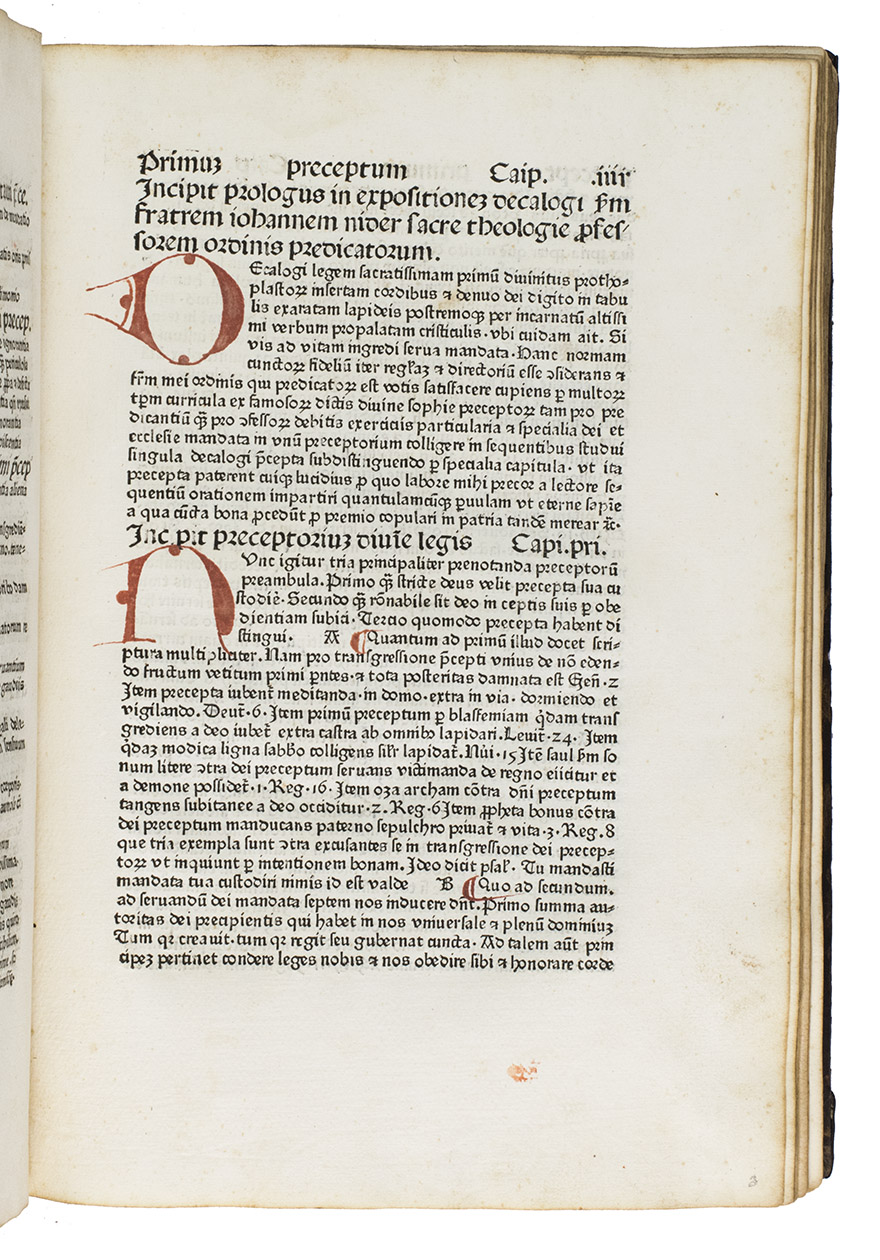 Primuꝫ preceptum Caip. .iiii
Incipit prologus in expositioneꝫ decalogi ẜm
fratrem iohannem nider sacre theologie ꝓfes⸗
sorem ordinis predicatorum.
Ecalogi legem sacratissimam primū divinitus protho⸗
plastoꝝ insertam cordibus ⁊ denuo dei digito in tabu
lis exaratam lapideis postremoqꝫ per incarnatū altissi
mi verbum propalatam cristiculis · vbi cuidam ait. Si
vis ad vitam ingredi serva mandata · Hanc normam
cunctoꝝ fideliū iter regłaꝫ ⁊ directoriū esse ↄsiderans ⁊
frm̄ mei ordinis qui predicatoꝝ est votis satisfacere cupiens ꝑ multoꝝ
tp̄m curricula ex famosoꝝ dictis divine sophie preceptoꝝ tam pro pre
dicantiū qꝫ̄ pro ↄfessoꝝ debitis exerciciis particularia ⁊ specialia dei et
ecclesie mandata in vnū preceptorium colligere in sequentibus studui
singula decalogi p̄cepta subdistinguendo ꝑ specialia capitula · vt ita
precepta paterent cuiqꝫ lucidius ꝑ quo labore mihi precor a lectore se⸗
quentiū orationem impartiri quantulamcūqꝫ ꝑuulam vt eterne sapīe
a qua cūcta bona ꝓcedūt ꝓ premio copulari in patria tandē merear ⁊c̄ ·
Inc pit preceptoriuꝫ diuīe legis Capi.pri.
Vnc igitur tria principaliter prenotanda preceptorū
preambula. Primo qꝫ̄ stricte deus velit precepta sua cu
stodiē · Secundo qꝫ̄ rōnabile sit deo in ceptis suis ꝑ obe
dientiam subici · Tercio quomodo precepta habent di
stingui · A Quantum ad primū illud docet scri⸗
ptura multipliciter. Nam pro transgressione p̄cepti vnius de nō eden⸗
do fructum vetitum primi pn̄tes · ⁊ tota posteritas damnata est Gen̄ · 2
Item precepta iubent̄ meditanda · in domo · extra in via · dormiendo et
vigilando. Deut̄ · 6 · Item primū preceptum ꝑ blasfemiam q̇dam trans
grediens a deo iubet̄ extra castra ab omnibꝰ lapidari. Leuit · 24 · Item
q̇daꝫ modica ligna sabbo colligens silr̄ lapidat̄. Nūi · 15 Itē saul ẜm so
num litere ↄtra dei preceptum servans victimanda de regno eiicitur et
a demone possidet̄ · 1 · Reg · 16 · Item oza archam cōtra dn̄i preceptum
tangens subitanee a deo occiditur · 2 · Reg · 6 Item ꝓpheta bonus cōtra
dei preceptum manducans paterno sepulchro privat̄ ⁊ vita · 3 · Reg · 8
que tria exempla sunt ↄtra excusantes se in transgressione dei precep⸗
toꝝ vt inquiunt ꝑ intentionem bonam. Ideo dicit psaƚ · Tu mandasti
mandata tua custodiri nimis id est valde B Quo ad secundum.
ad servandū dei mandata septem nos inducere dn̄t. Primo summa au⸗
toritas dei precipientis qui habet in nos vniuersale ⁊ plenū dominiuꝫ
Tum qꝛ creauit · tum qꝛ regit seu gubernat cuncta · Ad talem aūt prin
cipeꝫ pertinet condere leges nobis ⁊ nos obedire sibi ⁊ honorare corde
3